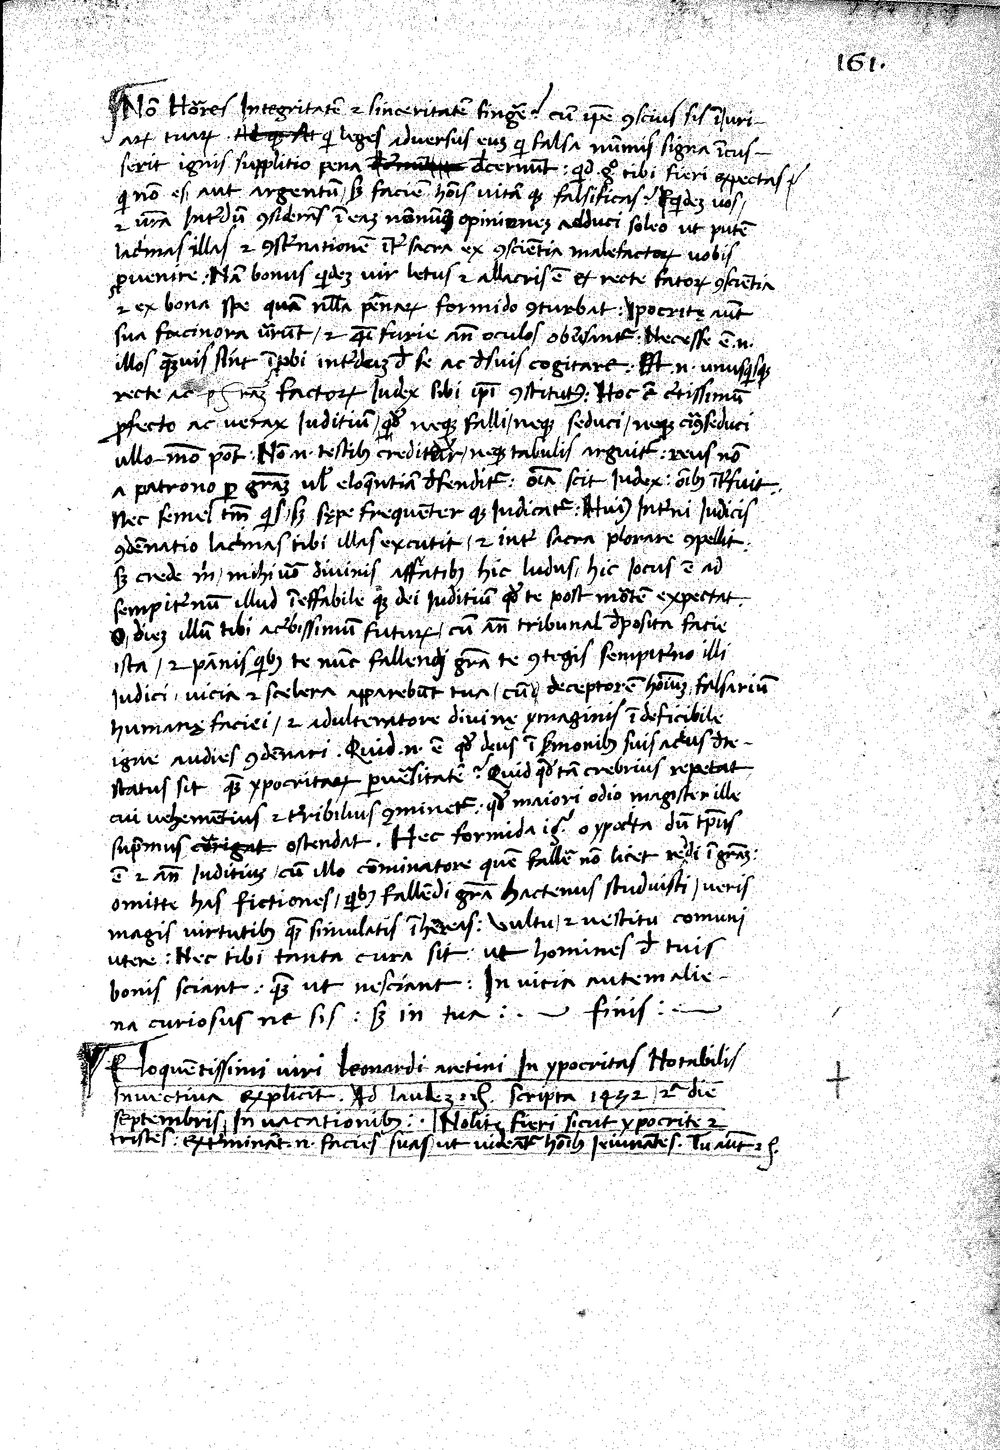 161.
Nō Hōres Integritatē ⁊ sinceritatē fingēs? cū ip̄e ꝯscius sis Iniuri-
aꝝ tuaꝝ. qi leges adversus euꝫ qi falsa nūmis signa īcus-
serit ignis supplitio pena dcernūt : qd gͦ tibi fieri expectas
qi nō es aut argentū, sꝫ faciē hōis vitā qꝫ falsificas? Eqidez vos,
⁊ vr̄a Interdū ꝯsiderās ī eaꝫ nōnūqꝫ opinionez adduci soleo ut putē
lacrimas illas ⁊ ꝯsternationē īt sacra ex ꝯsciētia malefactoꝝ vobis
ꝓvenire : Nā bonus qidez vir letus ⁊ allacris ē et recte factoꝝ ꝯsciētia
⁊ ex bona spe quā nlla penaꝝ formido ꝯturbat : Ipocrite aūt
sua facinora ūrūt, ⁊ qī furie añ oculos obversant : Necesse ē .n.
illos qꝫvis sint īprobi interduꝫ d se ac d suis cogitare : Est .n. unusqisqꝫ
recte ac factoꝝ Iudex sibi ipi ꝯstitutꝰ : Hoc ē certissimū
ꝓfecto ac verax Iuditiū, qd neqꝫ falli, neqꝫ seduci
ullo mō pōt . Nō .n. testibꝫ credit, neqꝫ tabulis arguit : reus nō
a patrono ꝑ grāꝫ vl eloqūtiā dfendit : oīa scit Iudex : oībꝫ īterfuit.
Nec semel tm̄ sꝫ sępe frequēter qꝫ Iudicat : Huiꝰ Interni Iudicis
ꝯdēnatio lacrimas tibi illas excutit, ⁊ inter sacra plorare ꝯpellit :
sꝫ crede m, mihi vō divinis affatibꝫ hic ludus, hic Iocus ē ad
sempiternū illud īeffabile qꝫ dei Iuditiū qd te post mōtē expectat.
O, diez illū tibi acerbissimū futuꝝ, cū añ tribunal dposita facie
ista, ⁊ pānis qibꝫ te nūc fallendi grā te ꝯtegis sempiterno illi
Iudici, vicia ⁊ scelera apparebūt tua, cū deceptorē hōiuꝫ, falsariū
humanę faciei, ⁊ adulteratore divinę ymaginis īdeficibile
igne audies ꝯdēnari . Quid .n. ē qd deus ī smonibꝫ suis adeo dte-
status sit qꝫ ypocritaꝝ ꝑversitatē? Quid qd tā crebrius repetat
cui vehemētius ⁊ terribilius ꝯminet : qd maiori odio magister ille
supmus ostendat . Hec formida ig o ypocrita dū tp̄us
ē ⁊ añ Iuditiuꝫ, cū illo cōminatore quē fallere nō licet redi ī grāꝫ :
omitte has fictiones, qibꝫ fallēdi grā hactenus studuisti, veris
magis virtutibꝫ qꝫ simulatis īhereas : Vultu, ⁊ vestitu comuni
utere : Nec tibi tanta cura sit ut homines d tuis
bonis sciant : qꝫ ut nesciant : In vicia autem alie-
na curiosus ne sis : sꝫ in tua : . — finis : —
Eloquētissimi viri Leonardi aretini In ypocritas Notabilis
Invectiva explicit . Ad laudez scripta 1452 diē
septembris In vacationibꝫ : Nolite fieri sicut ypocrite ⁊
tristes : exterminant .n. facies suas ut videāt hōibꝫ Ieiunātes . Tu aūt